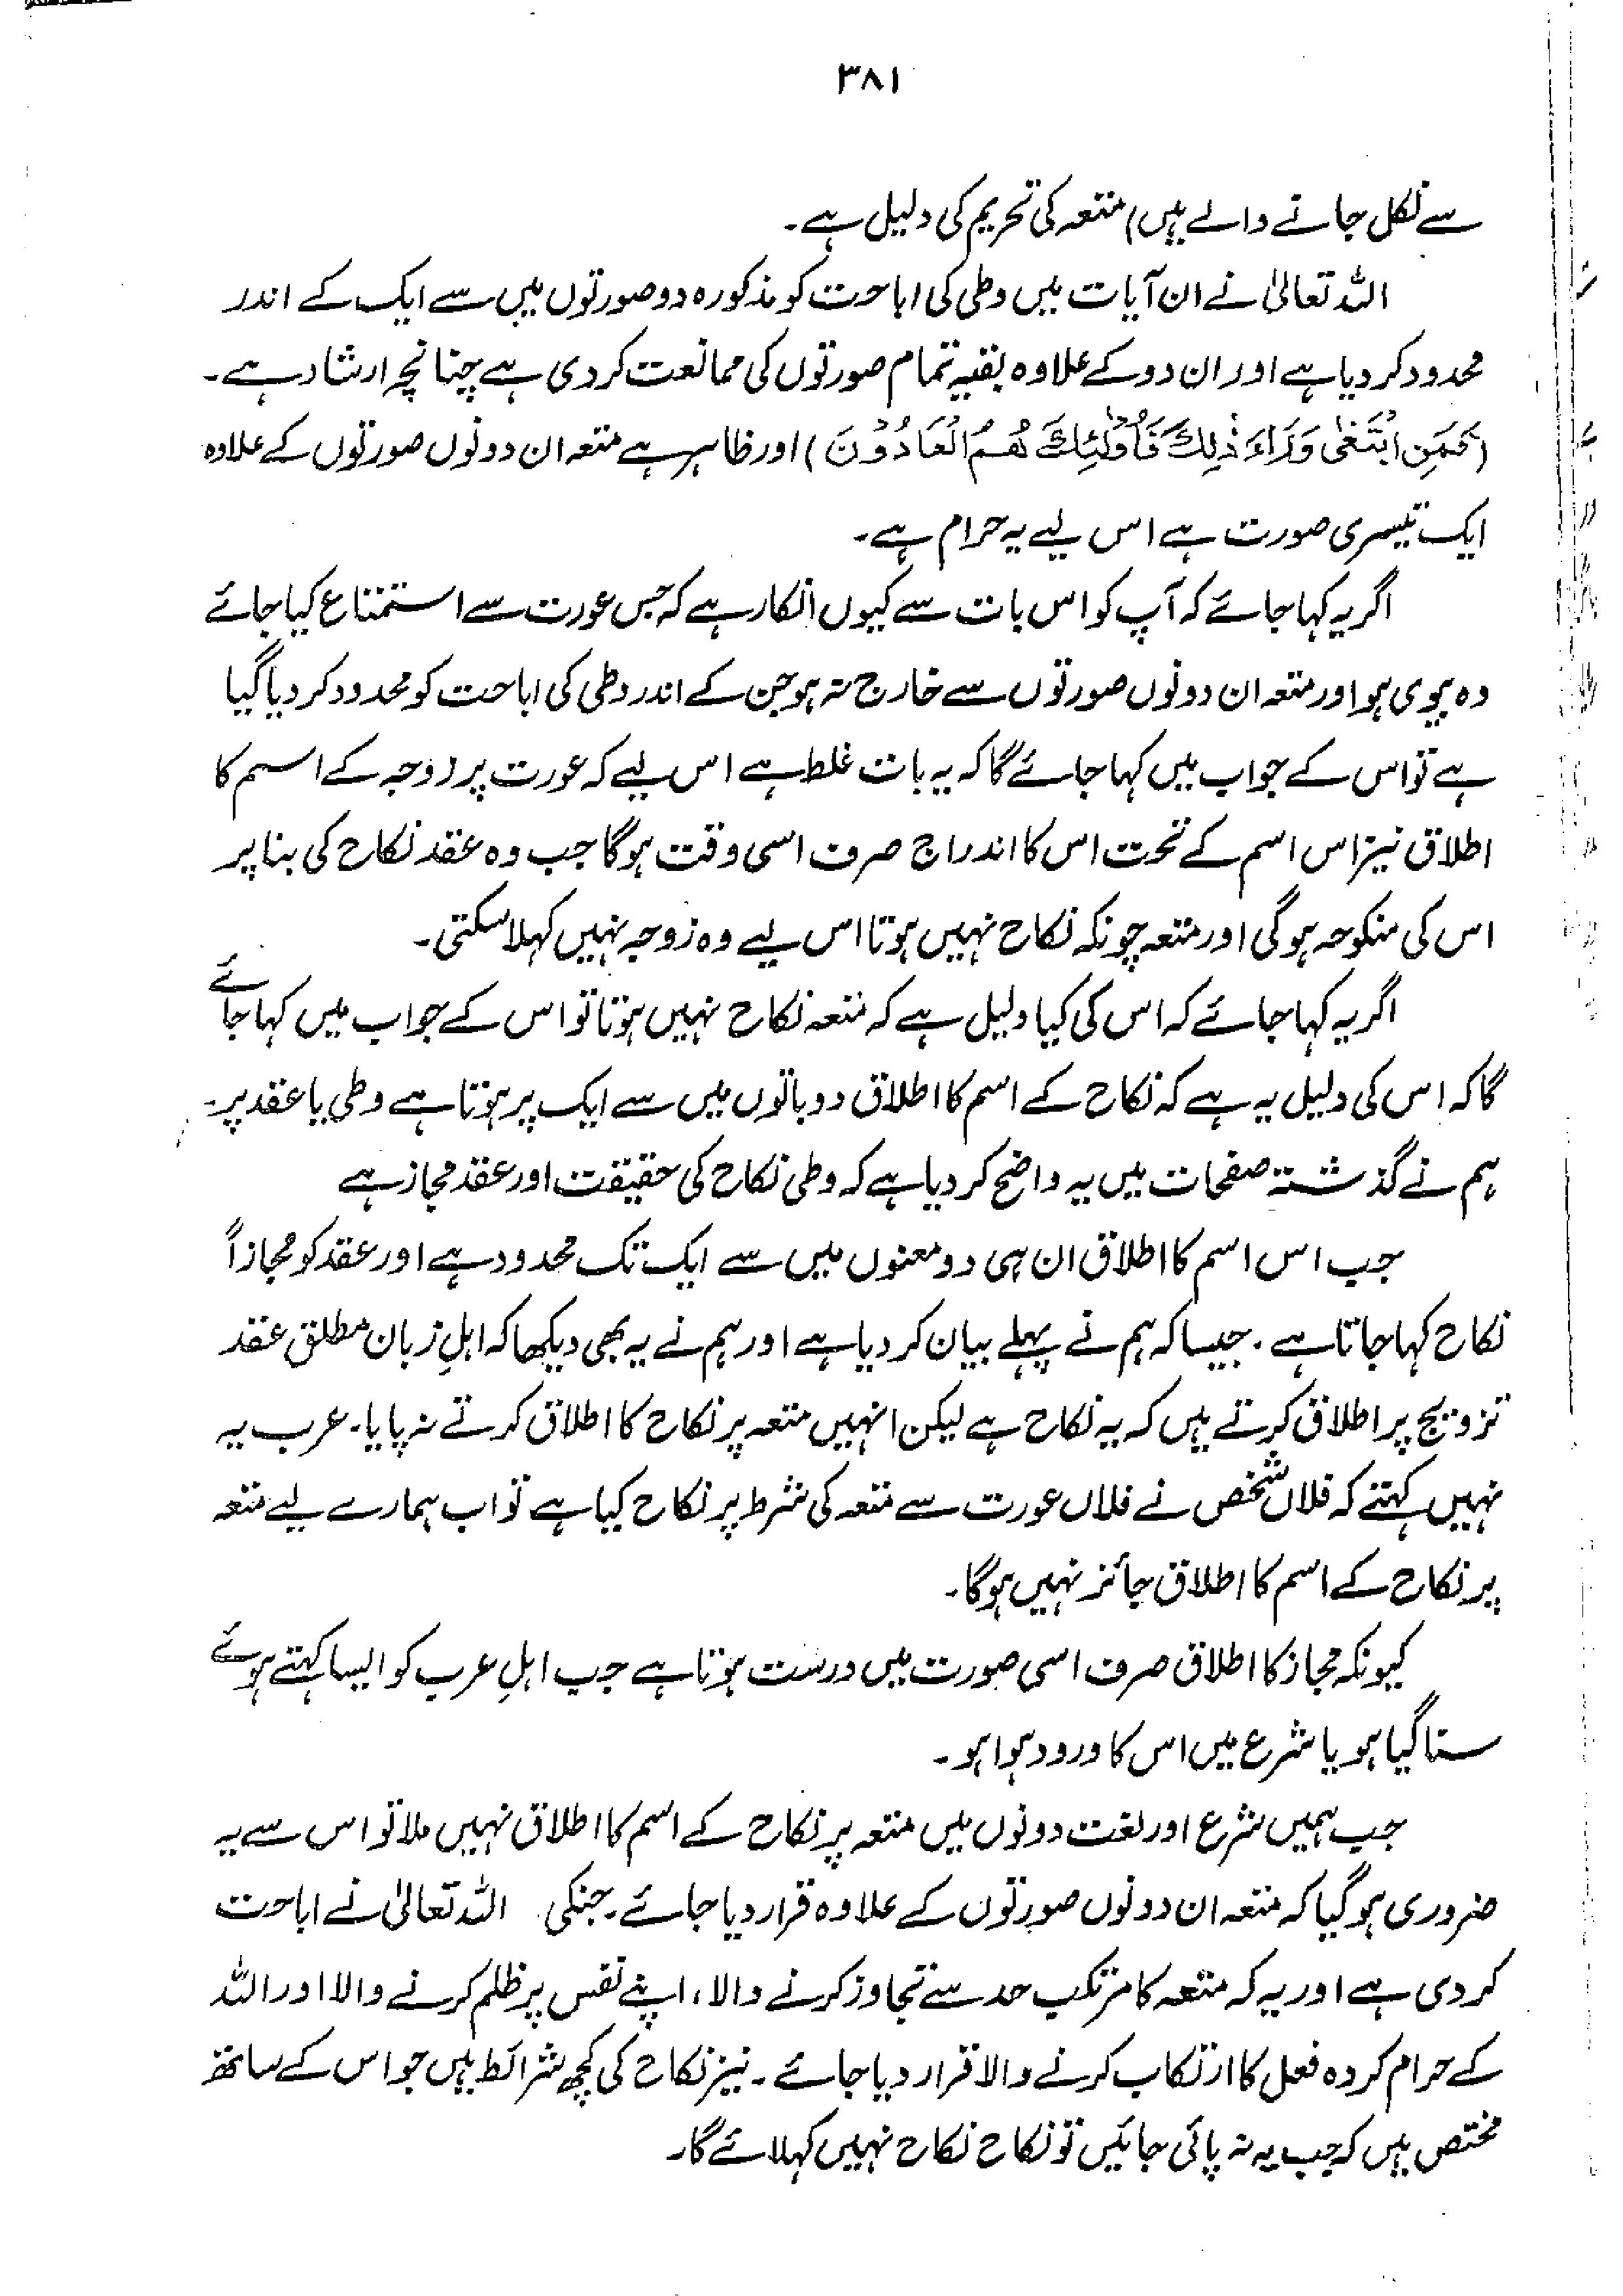 ۳۸۱
سے نکل جانے والے ہیں) متعہ کی تحریم کی دلیل ہے۔
اللہ تعالیٰ نے ان آیات میں وطی کی اباحت کو مذکورہ دو صورتوں میں سے ایک کے اندر
محدود کر دیا ہے اور ان دو کے علاوہ بقیہ تمام صورتوں کی ممانعت کر دی ہے چنانچہ ارشاد ہے۔
(فَمَنِ ابْتَغٰى وَرَاءَ ذٰلِكَ فَاُولٰٓئِكَ هُمُ الْعَادُوْنَ) اور ظاہر ہے متعہ ان دونوں صورتوں کے علاوہ
ایک تیسری صورت ہے اس لیے یہ حرام ہے۔
اگر یہ کہا جائے کہ آپ کو اس بات سے کیوں انکار ہے کہ جس عورت سے استمتاع کیا جائے
وہ بیوی ہو اور متعہ ان دونوں صورتوں سے خارج نہ ہو جن کے اندر وطی کی اباحت کو محدود کر دیا گیا
ہے تو اس کے جواب میں کہا جائے گا کہ یہ بات غلط ہے اس لیے کہ عورت پر زوجہ کے اسم کا
اطلاق نیز اس اسم کے تحت اس کا اندراج صرف اسی وقت ہوگا جب وہ عقد نکاح کی بنا پر
اس کی منکوحہ ہوگی اور متعہ چونکہ نکاح نہیں ہوتا اس لیے وہ زوجہ نہیں کہلا سکتی۔
اگر یہ کہا جائے کہ اس کی کیا دلیل ہے کہ متعہ نکاح نہیں ہوتا تو اس کے جواب میں کہا جائے
گا کہ اس کی دلیل یہ ہے کہ نکاح کے اسم کا اطلاق دو باتوں میں سے ایک پر ہوتا ہے وطی یا عقد پر۔
ہم نے گذشتہ صفحات میں یہ واضح کر دیا ہے کہ وطی نکاح کی حقیقت اور عقد مجاز ہے
جب اس اسم کا اطلاق ان ہی دو معنوں میں سے ایک تک محدود ہے اور عقد کو مجازاً
نکاح کہا جاتا ہے۔ جیسا کہ ہم نے پہلے بیان کر دیا ہے اور ہم نے یہ بھی دیکھا کہ اہلِ زبان مطلق عقد
تزویج پر اطلاق کرتے ہیں کہ یہ نکاح ہے لیکن انہیں متعہ پر نکاح کا اطلاق کرتے نہ پایا۔ عرب یہ
نہیں کہتے کہ فلاں شخص نے فلاں عورت سے متعہ کی شرط پر نکاح کیا ہے تو اب ہمارے لیے متعہ
پر نکاح کے اسم کا اطلاق جائز نہیں ہوگا۔
کیونکہ مجاز کا اطلاق صرف اسی صورت میں درست ہوتا ہے جب اہلِ عرب کو ایسا کہتے ہوئے
سنا گیا ہو یا شرع میں اس کا ورود ہوا ہو۔
جب ہمیں شرع اور لغت دونوں میں متعہ پر نکاح کے اسم کا اطلاق نہیں ملا تو اس سے یہ
ضروری ہو گیا کہ متعہ ان دونوں صورتوں کے علاوہ قرار دیا جائے۔ جنکی اللہ تعالیٰ نے اباحت
کر دی ہے اور یہ کہ متعہ کا مرتکب حد سے تجاوز کرنے والا، اپنے نفس پر ظلم کرنے والا اور اللہ
کے حرام کردہ فعل کا ارتکاب کرنے والا قرار دیا جائے۔ نیز نکاح کی کچھ شرائط ہیں جو اس کے ساتھ
مختص ہیں کہ جب یہ نہ پائی جائیں تو نکاح نکاح نہیں کہلائے گا۔